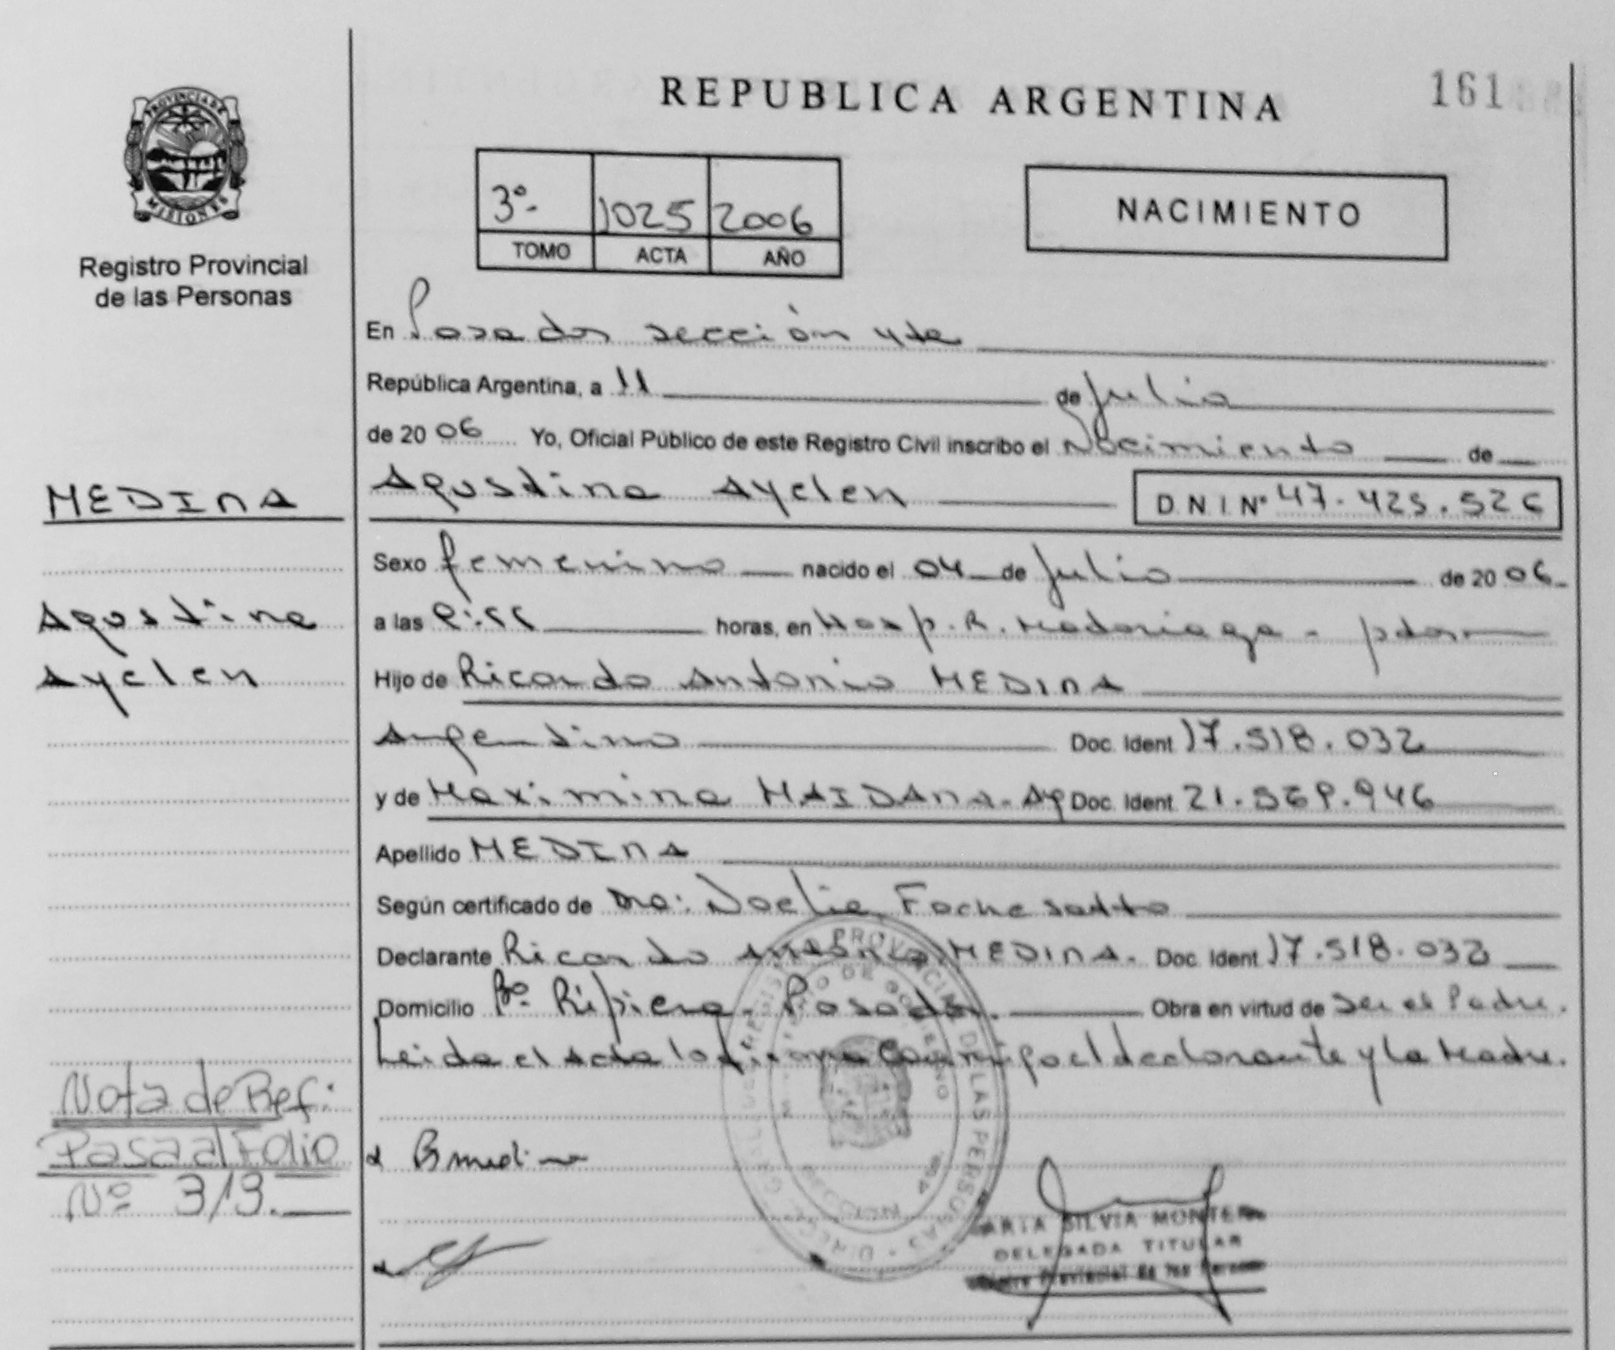 REPUBLICA ARGENTINA
161
PROVINCIA DE
MISIONES
Registro Provincial
de las Personas
3º- 1025 2006
TOMO ACTA AÑO
NACIMIENTO
En Posadas sección 4ta
República Argentina, a 11 de Julio
de 2006 Yo, Oficial Público de este Registro Civil inscribo el Nacimiento de
MEDINA
Agustina Ayelen
D.N.I. Nº 47.425.526
Sexo femenino nacido el 04 de Julio de 2006
Agustina
a las horas, en Hosp. R. Madariaga - pdas
Ayelen
Hijo de Ricardo Antonio MEDINA
Argentino Doc. Ident 17.518.032
y de Maximina MAIDANA. Doc. Ident 21.
Apellido MEDINA
Según certificado de Dra: Noelia Fochesatto
Declarante Ricardo Antonio MEDINA. Doc. Ident 17.518.032
Domicilio Bº Posadas. Obra en virtud de Ser el Padre.
Leida el Acta la firman Conmigo el declarante y la Madre.
Nota de Ref:
Pasa al Folio
Nº 313.
PROVINCIA DE LAS PERSONAS
MARIA SILVIA MONTERO
DELEGADA TITULAR
Provincial de las Personas